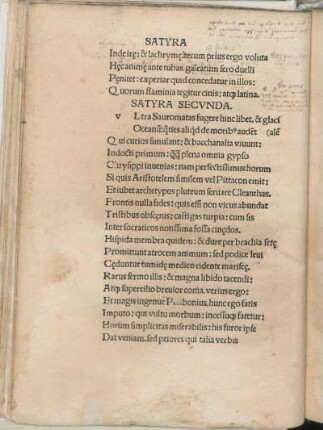 SATYRA
Inde irę: & lachrymę. tecum prius ergo voluta
Hęc animę ante tubas. galeatum sero duelli
Pęnitet: experiar quid concedatur in illos:
Quorum flaminia tegitur cinis: atq; latina.
SATYRA SECVNDA.
v Ltra Sauromatas fugere hinc libet. & glaci
Oceanū: qties aliqd de morib⁹ audēt (alē
Qui curios simulant: & bacchanalia viuunt:
Indocti primum: qq̄ plena omnia gypso
Chrysippi inuenias: nam perfectissimus horum
Si quis Aristotelem similem vel Pittacon emit:
Et iubet archetypos pluteum seruare Cleanthas.
Frontis nulla fides: quis em̄ non vicus abundat
Tristibus obscęnis: castigas turpia: cum sis
Inter socraticos notissima fossa cinędos.
Hispida membra quidem: & durę per brachia setę
Promittunt atrocem animum: sed podice leui
Cęduntur tumidę medico ridente mariscę.
Rarus sermo illis: & magna libido tacendi:
Atq; supercilio breuior coma. verius ergo:
Et magis ingenue Peribonius. hunc ego fatis
Imputo: qui vultu morbum: incessuq; fatetur:
Horum simplicitas miserabilis: his furor ipse
Dat veniam. sed peiores qui talia verbis